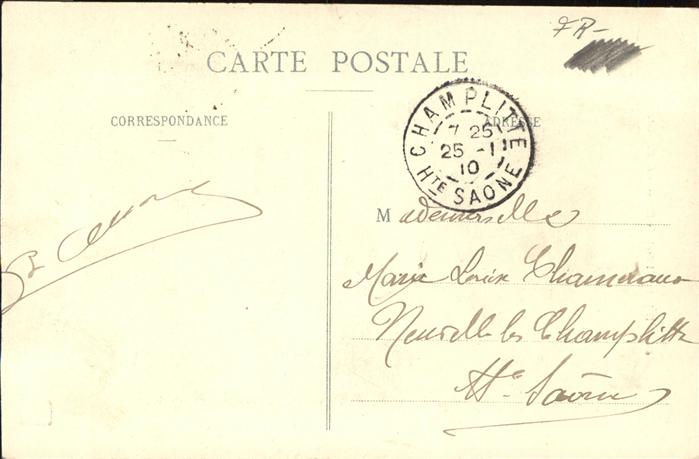 FR-
CARTE POSTALE
CORRESPONDANCE
ADRESSE
CHAMPLITTE
7 25
25 -1
10
HTE SAONE
Mademoiselle
Marie Louise
Neuvelle les Champlitte
Hte Saône